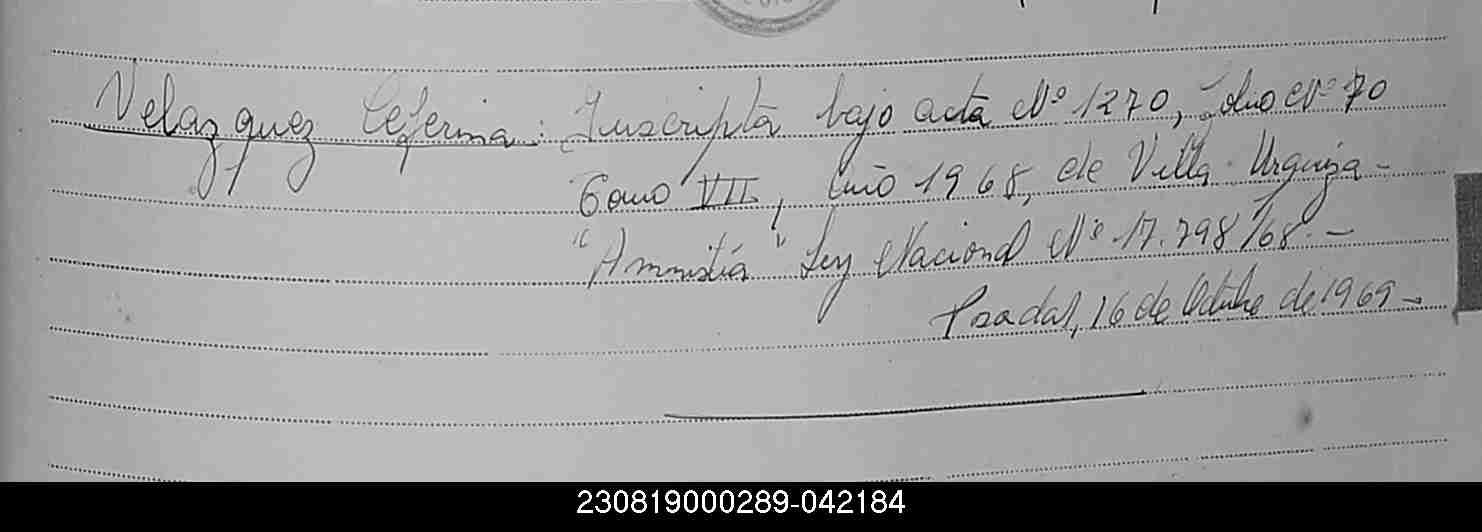 Velazquez Ceferina: Inscripta bajo acta Nº 1270, Folio Nº 70
Tomo VII, Año 1968, de Villa Urquiza -
"Amnistía" Ley Nacional Nº 17.798/68.-
Posadas, 16 de Octubre de 1969-
230819000289-042184